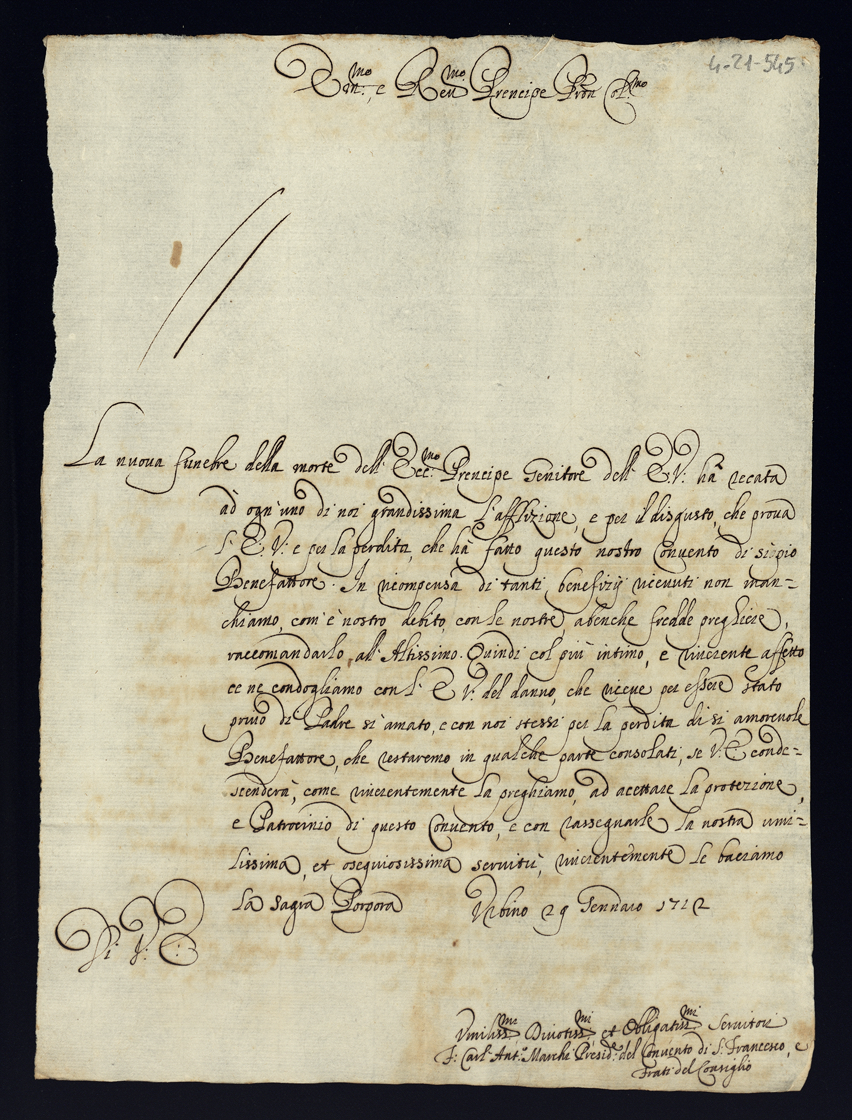 4-21-545
Em:mo, e Reu:mo Prencipe Pron Col:mo
La nuova funebre della morte dell' Ecc:mo Prencipe Genitore dell' E.V: hà recata
ad ogn'uno di noi grandissima l'afflizione, e per il disgusto, che prova
l' E. V: e per la perdita, che hà fatto questo nostro Convento di sì pio
Benefattore. In ricompensa di tanti benefizij ricevuti non man=
chiamo, com'è nostro debito, con le nostre, abenche fredde preghiere,
raccomandarlo all' Altissimo. Quindi col più intimo, e riverente affetto
ce ne condogliamo con l' E. V: del danno, che riceve per essere stato
privo di Padre sì amato, e con noi stessi per la perdita di sì amorevole
Benefattore, che restaremo in qualche parte consolati, se V: E: conde=
scenderà, come riverentemente la preghiamo, ad acettare la protezione,
e Patrocinio di questo Convento, e con rassegnarle la nostra umi=
lissima, et osequiosissima servitù, riverentemente le baciamo
la sagra Porpora Urbino 29 Gennaro 1712
Di V: E:
Umiliss:mi Divotiss:mi et Obligatiss:mi Servitori
F: Carl' Ant:o Marchi Presid:e del Convento di S: Francesco, e
Frati del Consiglio